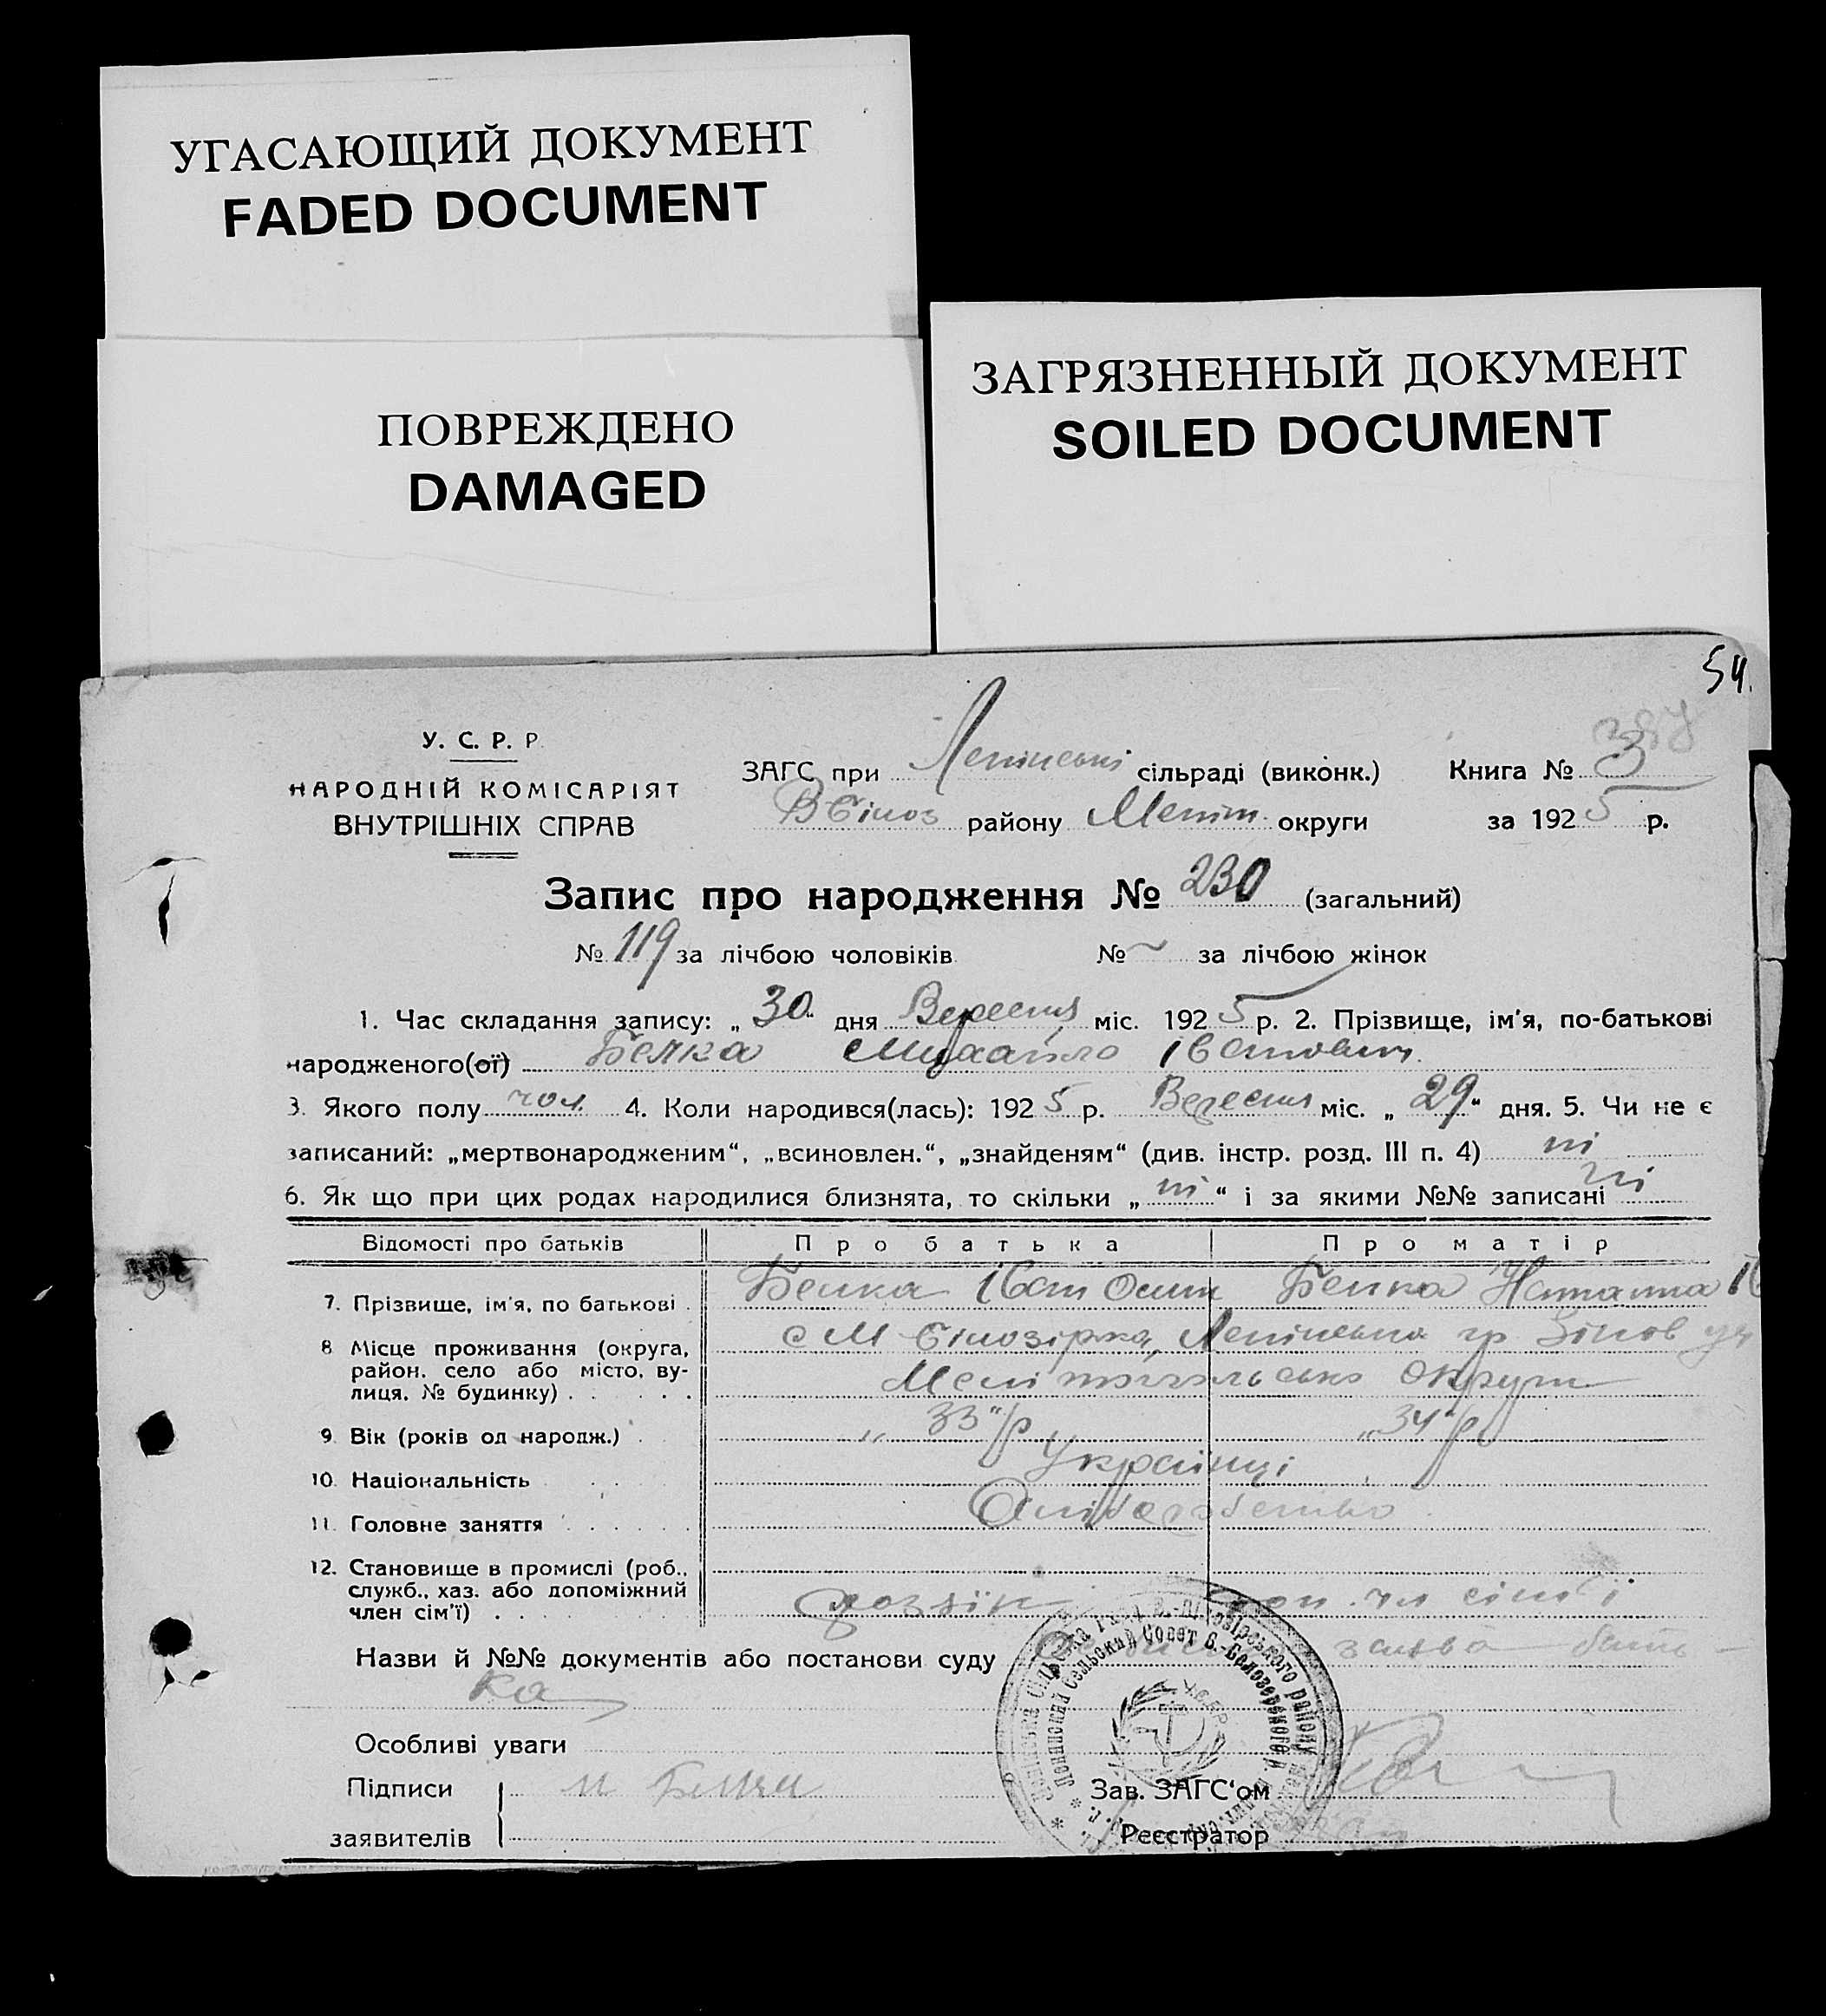 УГАСАЮЩИЙ ДОКУМЕНТ
FADED DOCUMENT
ПОВРЕЖДЕНО
DAMAGED
ЗАГРЯЗНЕННЫЙ ДОКУМЕНТ
SOILED DOCUMENT
54.
У. С. Р. Р
НАРОДНІЙ КОМІСАРІЯТ
ВНУТРІШНІХ СПРАВ
ЗАГС при Ленінські сільраді (виконк.) Книга № 3
В Білоз району Меліт. округи за 1925 р.
Запис про народження № 230 (загальний)
№ 119 за лічбою чоловіків № ~ за лічбою жінок
1. Час складання запису: „ 30 " дня Вересня міс. 1925 р. 2. Прізвище, ім'я, по-батькові
народженого(ої) Белка Михайло Іванович.
3. Якого полу чол. 4. Коли народився(лась): 1925 р. Вересня міс. „ 29 " дня. 5. Чи не є
записаний: „мертвонародженим", „всиновлен.", „знайденям" (див. інстр. розд. III п. 4) ні
6. Як що при цих родах народилися близнята, то скільки „ ні " і за якими №№ записані ні
Відомості про батьків Про батька Про матір
7. Прізвище, ім'я, по батькові Белка Іван Осип Белка Наталка Ів
8 Місце проживання (округа, с М Білозірка, Ленінська
район, село або місто, ву-
лиця, № будинку) Мелітопольська округи
9 Вік (років од народж.) „ 33 " р „ 34 " р
10. Національність Українці
11. Головне заняття
12. Становище в промислі (роб.,
служб., хаз. або допоміжний
член сім'ї) хозяїн доп. чл сім'ї
Назви й №№ документів або постанови суду заява бать-
ка
Особливі уваги
Підписи Зав. ЗАГС'ом
заявителів Реєстратор